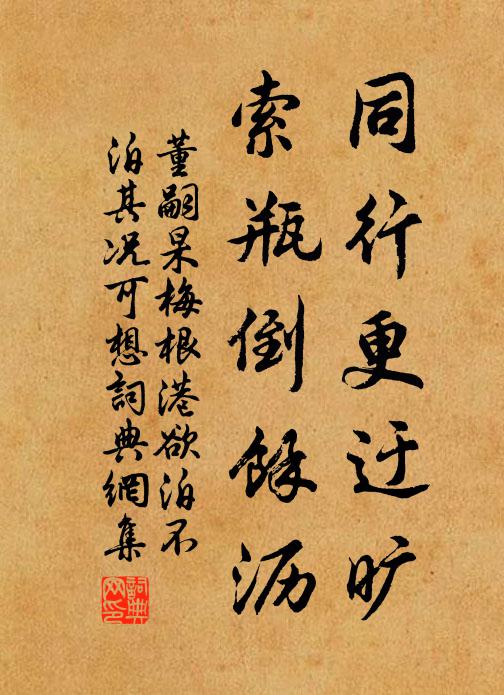 同行更迂旷
索瓶倒馀沥
董嗣杲梅根港欲泊不
泊其况可想詞典網集
詞典网印